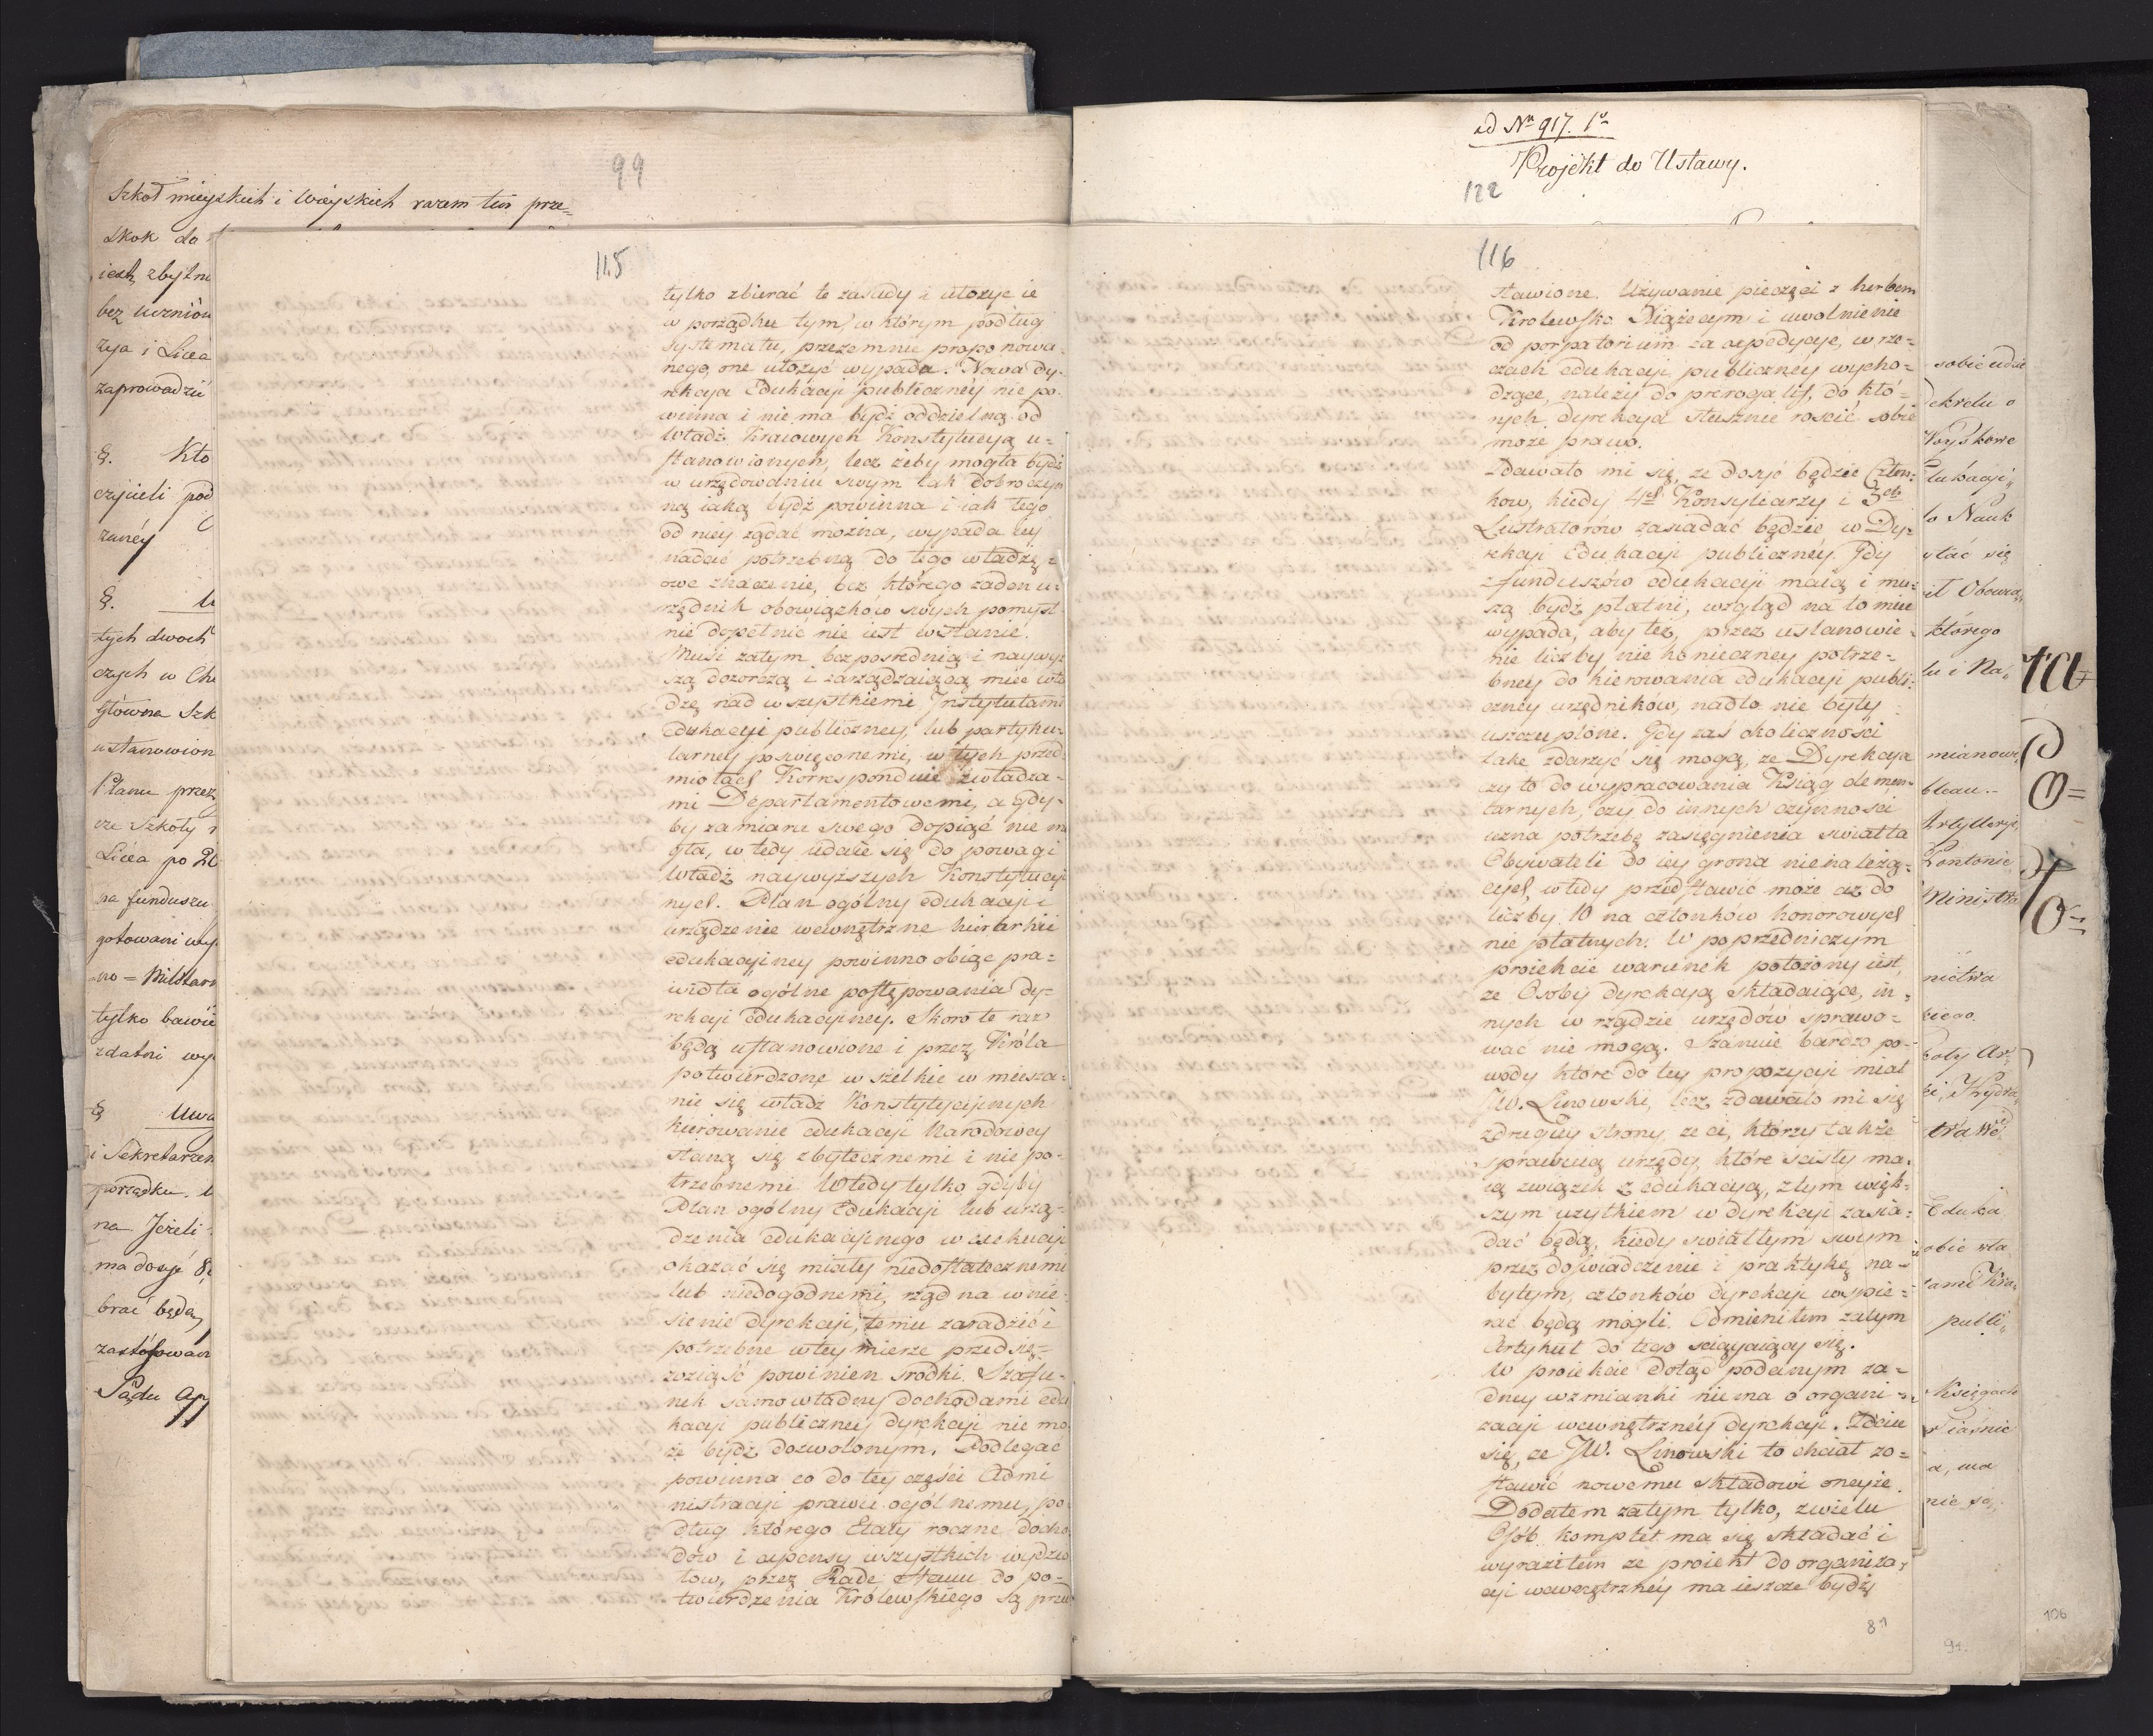 99
Szkoł mieyskich i Wieyskich razem ten prze=
skok do
iest zbytni
bez uczniów
zya i Licea
zaprowadzić
§. Kto
czycieli pod
zaney
§.
tych dwoch
czych w
Główna Szk
ustanowion
Planu przez
cze Szkoły
Licea po
na funduszu
gotowani
no = Militarn
tylko bawie
zdatni
§ Uwa
i Sekretarzem
porządku.
na Jeżeli
ma dosyć
brać będą
zastosowan
Sądu App
115
tylko zbierać te zasady i ułozyć ie
w porządku tym, w którym podług
systematu, przezemnie proponowa=
nego, one ułożyć wypada. Nowa Dy=
rekcya Edukacji publiczney nie po=
winna i nie ma bydź oddzielną od
Władz Kraiowych Konstytucyą u=
stanowionych, lecz żeby mogła bydź
w urzędowaniu swym tak dobroczyn
ną iaką bydź powinna i iak tego
od niey żądać można, wypada iey
nadać potrzebną do tego władzę i
owe znaczenie, bez którego żaden u=
rzędnik obowiązków swych pomyśl=
nie dopełnić nie iest wstanie.
Musi zatym bezposrednią i naywyż
szą dozorczą i zarządzaiącą mieć wła
dzę nad wszystkiemi Instytutami
edukacyi publiczney, lub partyku=
larney poswięconemi, w tych przed
miotach Korresponduie z władza=
mi Departamentowemi, a gdy=
by zamiaru swego dopiąć nie mo
gła, wtedy udaie się do powagi
Władz naywyższych Konstytucyi
nych. Plan ogólny edukacji i
urządzenie wewnętrzne hierarhii
edukacyiney powinno obiąć pra=
widła ogólne postępowania Dy=
rekcyi Edukacyiney. Skoro te raz
będą ustanowione i przez Króla
potwierdzone wszelkie w miesza=
nie się władz Konstytycyinych
kierowanie edukacji Narodowey
staną się zbytecznemi i niepo=
trzebnemi. Wtedy tylko gdyby
Plan ogólny Edukacji lub urzą=
dzenia edukacyinego w exekucyi
okazać się miały niedostatecznemi
lub niedogodnemi, rząd na wnie=
sienie dyrekcyi, temu zaradzić i
potrzebne wtey mierze przedsię=
wziąść powinien srodki. Szafu=
nek samowładny dochodami edu
kacyi publiczney dyrekcyi nie mo
że bydź dozwolonym. Podlegać
powinna co do tey części Admi
nistracyi prawu ogólnemu, po
dług którego Etaty roczne docho
dów i expensy wszystkich wydzia
łow, przez Radę Stanu do po=
twierdzenia Królewskiego są przed
ad Nr 917. 1o
Projekt do Ustawy.
122
116
stawione. Używanie pieczęci z herbem
Krolewsko Xiążęcym i uwolnienie
od porpatorium za expedycyie, w rze=
czach edukacyi publiczney wycho=
dzące, należy do prerogatyf, do któ=
rych dyrekcya słusznie roscić sobie
może prawo.
Zdawało mi się, ze dosyć będzie Człon=
kow, kiedy 4ch Konsyliarzy i 3ch
Lustratorów zasiadać będzie w Dy=
rekcyi Edukacyi publiczney. Gdy
z funduszów edukacyi maią i mu=
szą bydź płatni, wzgląd na to mieć
wypada, aby też, przez ustanowie=
nie liczby nie konieczney potrze=
bney do kierowania edukacyi publi=
czney urzędników, nadto nie były
uszczuplone. Gdy zaś okoliczności
take zdarzyć się mogą, ze Dyrekcya
czy to do wypracowania Xsiąg elemen=
tarnych, czy do innych czynności
uzna potrzebę zasięgnienia swiatła
Obywateli do iey grona nienależą=
cych, wtedy przedstawić może aż do
liczby 10 na członków honorowych
nie płatnych. W poprzedniczym
proiekcie warunek położony iest,
ze Osoby dyrekcyą składaiące, in=
nych w rządzie urzędow sprawo=
wać nie mogą. Szanuie bardzo po=
wody które do tey propozycyi miał
JW. Linowski, lecz zdawało mi się
z drugiey strony, ze ci, którzy także
sprawuią urzędy, które scisły ma=
ią związek z edukacyą, z tym więk=
szym użytkiem w dyrekcyi zasia=
dać będą, kiedy swiatłym swym
przez doswiadczenie i praktykę na=
bytym, członków dyrekcyi wspie=
rać będą mogli. Odmieniłem zatym
Artykuł do tego sciągaiący się.
W proiekcie dotąd podanym ża=
dney wzmianki niema o organi=
zacyi wewnętrzney dyrekcyi. Zdaie
się, ze JW. Linowski to chciał zo=
stawić nowemu składowi oneyże.
Dodałem zatym tylko, zwielu
Osób komplet ma się składać i
wyraziłem że proiekt do organiza=
cyi wewnętrzney ma ieszcze bydź
87
sobie udzie
Dekretu o
Woyskowe
Edukacyi
to Nauk
stać się
it Obowią
którego
lu i Na
mianowi
bleau.
Artyllerye,
Pontonie
Ministra
nictwa
kiego.
koty Ar
ki, Hydra
trawe
Eduka
obie wła
tami Kra
publi
Xsięgach
a, ma
nie są,
94.
106